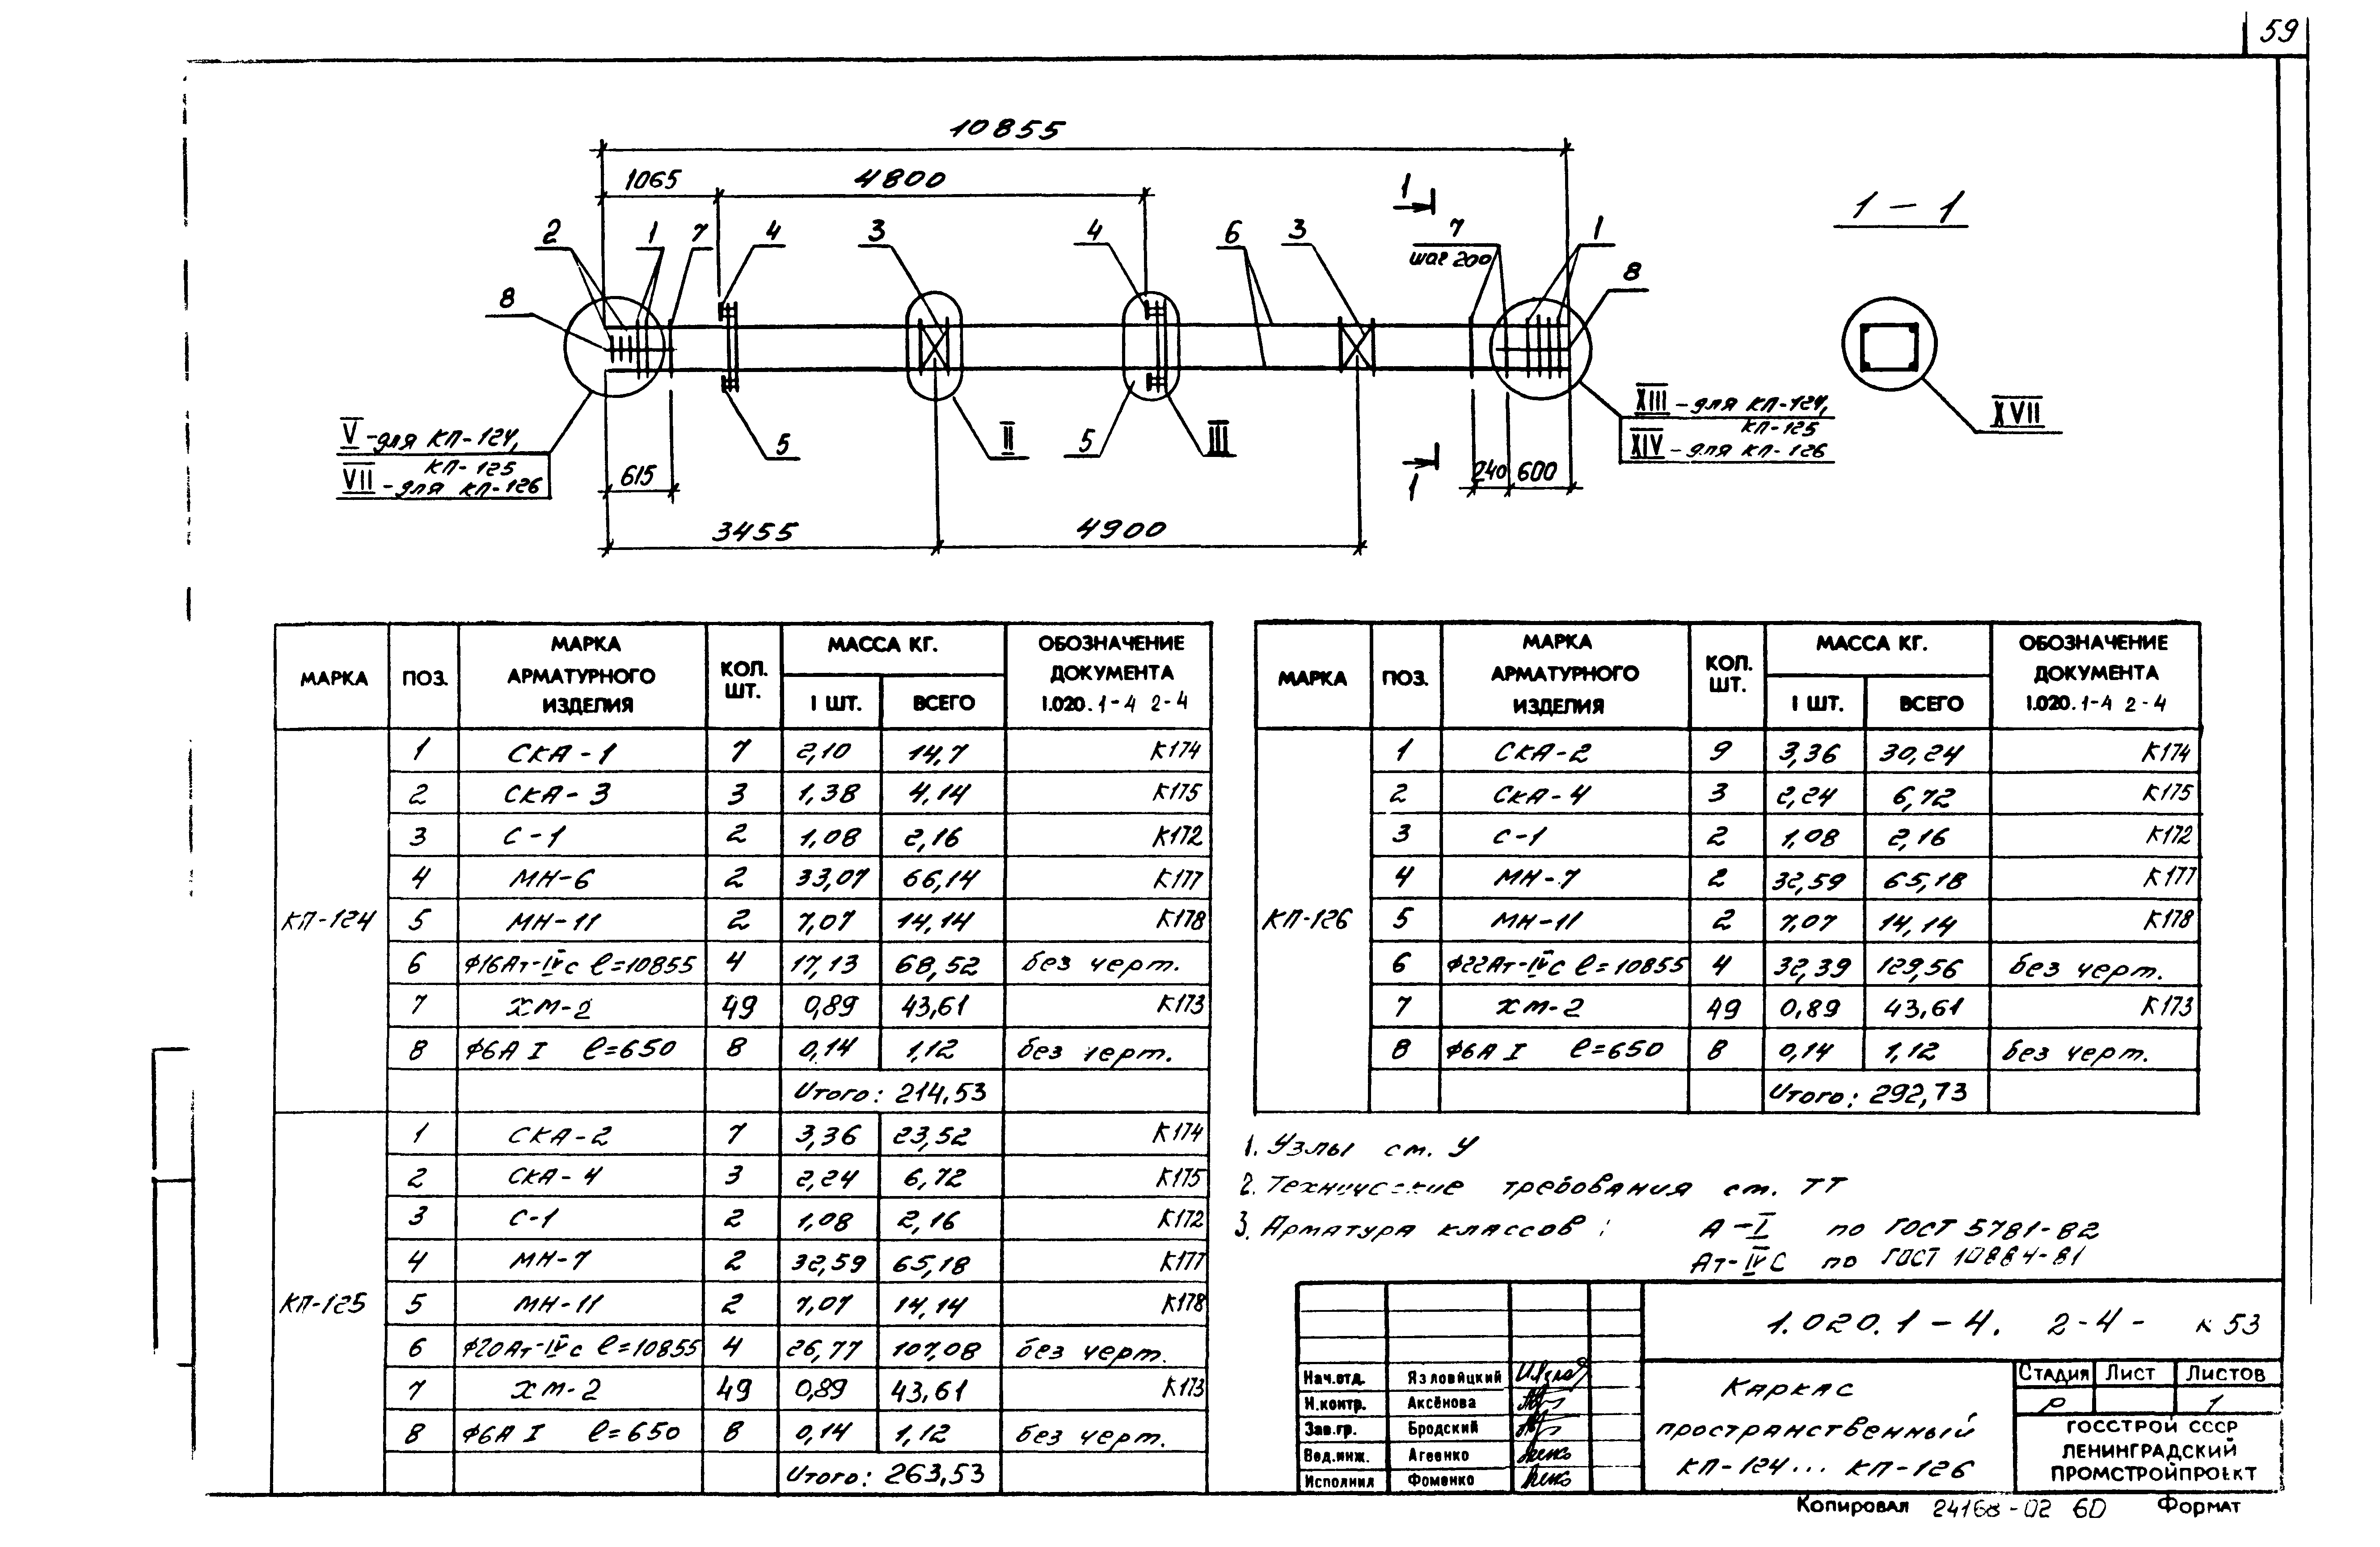 59
10855
1065 4800
1 1-1
2 1 7 4 3 4 6 3 7 1
шаг 200
8 8
V-для КП-124,
КП-125
VII-для КП-126
5 II 5 III
XIII-для КП-124,
КП-125
XIV-для КП-126
XVII
615 240 600
1
3455 4900
МАРКА ПОЗ. МАРКА АРМАТУРНОГО ИЗДЕЛИЯ КОЛ. ШТ. МАССА КГ. 1 ШТ. ВСЕГО ОБОЗНАЧЕНИЕ ДОКУМЕНТА 1.020.1-4 2-4
КП-124
1 СКА-1 7 2,10 14,7 К174
2 СКА-3 3 1,38 4,14 К175
3 С-1 2 1,08 2,16 К172
4 МН-6 2 33,07 66,14 К177
5 МН-11 2 7,07 14,14 К178
6 Ф16Ат-IVс ℓ=10855 4 17,13 68,52 без черт.
7 ХМ-2 49 0,89 43,61 К173
8 Ф6А I ℓ=650 8 0,14 1,12 без черт.
Итого: 214,53
КП-125
1 СКА-2 7 3,36 23,52 К174
2 СКА-4 3 2,24 6,72 К175
3 С-1 2 1,08 2,16 К172
4 МН-7 2 32,59 65,18 К177
5 МН-11 2 7,07 14,14 К178
6 Ф20Ат-IVс ℓ=10855 4 26,77 107,08 без черт.
7 ХМ-2 49 0,89 43,61 К173
8 Ф6А I ℓ=650 8 0,14 1,12 без черт.
Итого: 263,53
МАРКА ПОЗ. МАРКА АРМАТУРНОГО ИЗДЕЛИЯ КОЛ. ШТ. МАССА КГ. 1 ШТ. ВСЕГО ОБОЗНАЧЕНИЕ ДОКУМЕНТА 1.020.1-4 2-4
КП-126
1 СКА-2 9 3,36 30,24 К174
2 СКА-4 3 2,24 6,72 К175
3 С-1 2 1,08 2,16 К172
4 МН-7 2 32,59 65,18 К177
5 МН-11 2 7,07 14,14 К178
6 Ф22Ат-IVс ℓ=10855 4 32,39 129,56 без черт.
7 ХМ-2 49 0,89 43,61 К173
8 Ф6А I ℓ=650 8 0,14 1,12 без черт.
Итого: 292,73
1. Узлы см. У
2. Технические требования см. ТТ
3. Арматура классов: А-I по ГОСТ 5781-82
Ат-IVС по ГОСТ 10884-81
1.020.1-4. 2-4- к 53
Нач.отд. Язловицкий
Н.контр. Аксёнова
Зав.гр. Бродский
Вед.инж. Агеенко
Исполнил Фоменко
Каркас
пространственный
КП-124... КП-126
Стадия Лист Листов
Р 1
ГОССТРОЙ СССР
ЛЕНИНГРАДСКИЙ
ПРОМСТРОЙПРОЕКТ
Копировал 24168-02 60 Формат